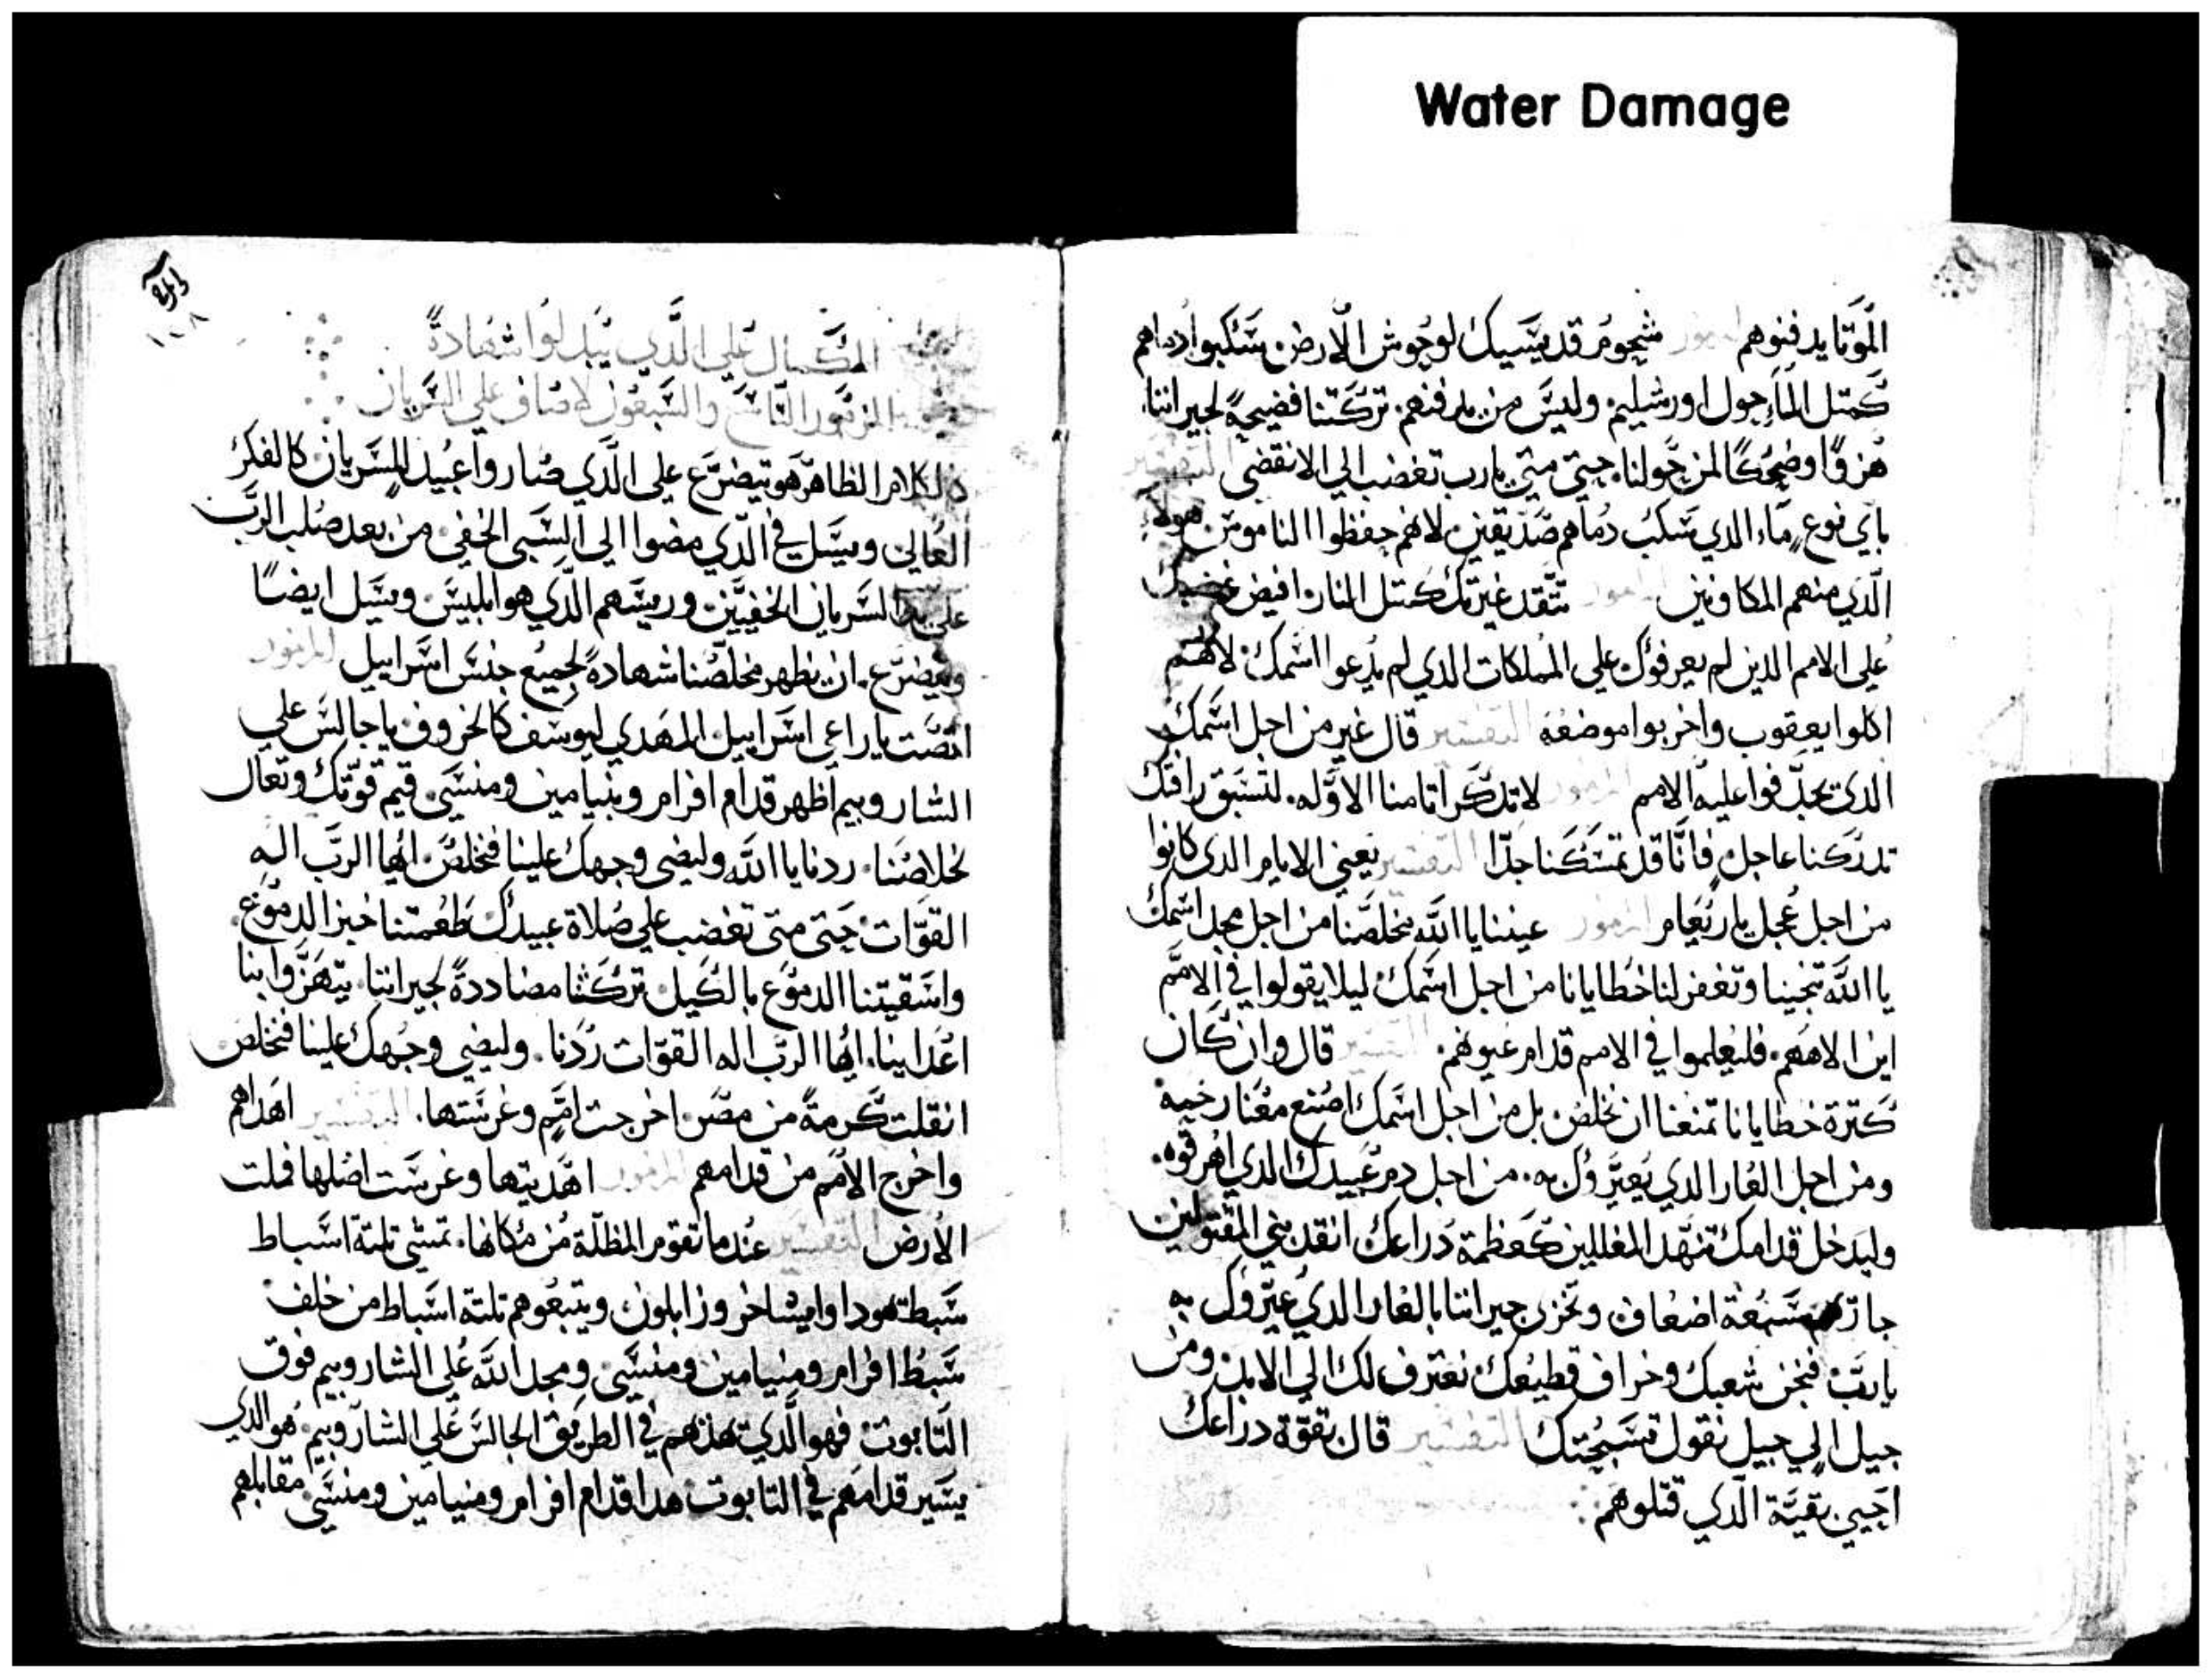 Water Damage
الموتا يدفنوهم المزمور شحوم قديسيك لوحوش الارض سكبوا دماهم
كمتل الماء حول اورشليم وليس من يدفنهم تركتنا فضيحة لجيراننا
هزوًا وضحكًا لمن حولنا حتى متى يارب تغضب الى الانقضى التفسير
باي نوع ماء الذي سكب دماهم صديقين لانهم حفظوا الناموس هولاء
الذي منهم المكاونين المزمور تتقد غيرتك كمتل النار افيض غضبك
على الامم الذين لم يعرفوك على المملكات الذي لم يدعوا اسمك لانهم
اكلوا يعقوب واخربوا موضعه التفسير قال غير من اجل اسمك
الذي يجدفوا عليه الامم المزمور لا تدكر اتامنا الاوله لتسبق رافتك
تدركنا عاجل فانا قد تمسكنا جدا التفسير يعني الايام الذي كانوا
من اجل عجل ياربعام المزمور عيننا يا الله مخلصنا من اجل مجد اسمك
يا الله تنجينا وتغفر لنا خطايانا من اجل اسمك ليلا يقولوا في الامم
اين الاههم فليعلموا في الامم قدام عيونهم التفسير قال وان كان
كترة خطايانا تمنعنا ان نخلص بل من اجل اسمك اصنع معنا رحمه
ومن اجل العار الذي يعيروك به من اجل دم عبيدك الذي اهرقوه
وليدخل قدامك تنهد المغللين كعظمة دراعك انقد بني المقتولين
جاز سبعة اضعاف وتخزى جيراننا بالعار الذي عيروك به
يارب فنحن شعبك وخراف قطيعك نعترف لك الى الابد ومن
جيل الي جيل نقول تسبحتك التفسير قال بقوة دراعك
احيي بقية الذي قتلوهم
١٠٨
الكمال على الذي يبدلوا شهادة
المزمور التاسع والسبعون لاصاف على السريان
الكلام الظاهر هو تيضرع على الذي صاروا عبيد للسريان كالفكر
العالي ويسل في الذي مضوا الي السبي الخفي من بعد صلب الرب
على يد السريان الخفيين وريسهم الذي هو ابليس ويسل ايضًا
ويتضرع ان يظهر مخلصنا شهادة لجميع جنس اسراييل المزمور
انصت ياراعي اسراييل المهدي ليوسف كالخروف ياجالس علي
الشاروبيم اظهر قدام افرام وبنيامين ومنسى قيم قوتك وتعال
لخلاصنا ردنا يا الله وليضى وجهك علينا فنخلص ايها الرب اله
القوات حتى متى تغضب على صلاة عبيدك طعمتنا خبز الدموع
واسقيتنا الدموع بالكيل تركتنا مضاددة لجيراننا يتهزوا بنا
اعداينا ايها الرب اله القوات ردنا وليضي وجهك علينا فنخلص
انقلت كرمة من مصر اخرجت امم وغرستها التفسير اهداهم
واخرج الامم من قدامهم المزمور اهديتها وغرست اصلها فملت
الارض التفسير عندما تقوم المظلة من مكانها تمشى تلتة اسباط
سبط يهودا وايشاخر وزابلون ويتبعوهم تلتة اسباط من خلف
سبط افرام ومنيامين ومنسى ومجد الله على الشاروبيم فوق
التابوت فهو الذي يهديهم في الطريق الجالس على الشاروبيم هو الذي
يسير قدامهم في التابوت هدا قدام افرام ومنيامين ومنسى مقابلهم